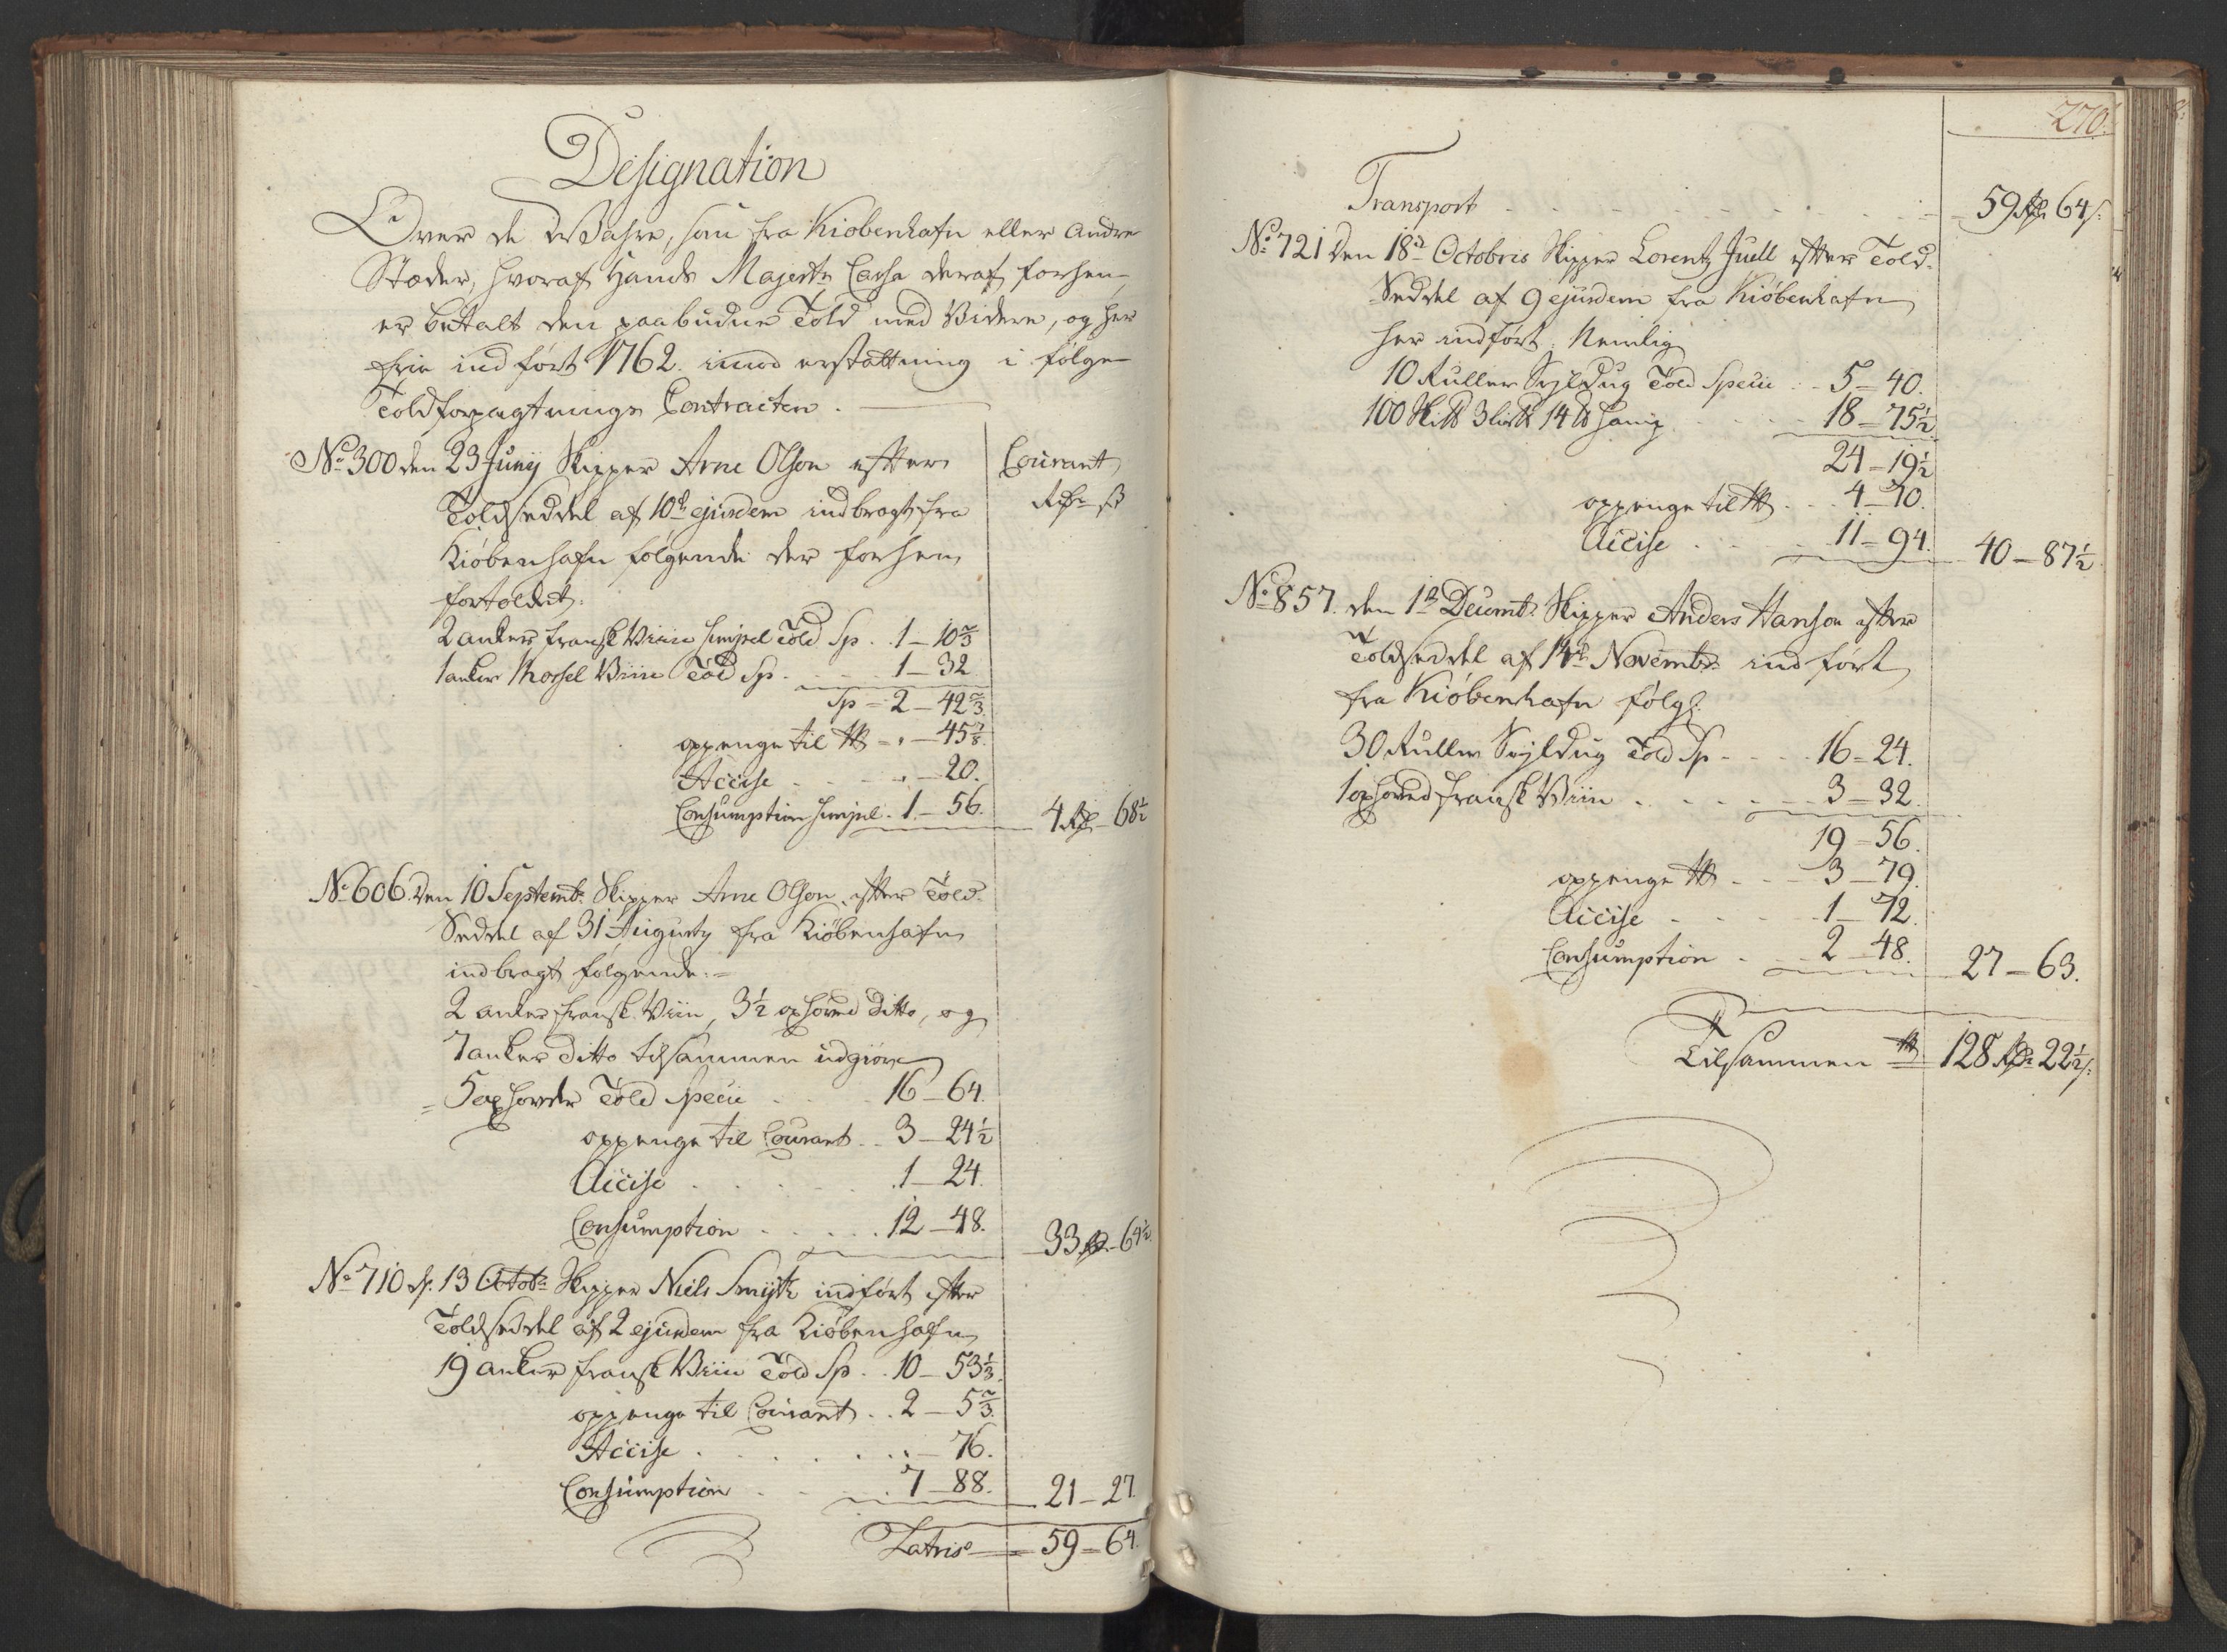 Designation
Over de Wahre, som fra Kiøbenhafn eller andre
Stæder, hvoraf Hands Majestts Cassa deraf forhen
er betalt den paabudne Told med Videre, og her
frie indført 1762. imod erstattning i følge
Toldforpagtnings Contracten.
No 300 den 23 Junij Skipper Arne Olson efter
Courant
Toldseddel af 10de ejusdem indbragt fra
Rdr ß
Kiøbenhafn følgende der forhen
fortoldet.
2 anker fransk Viin simpel Told Sp. 1 – 10 2/3
1 anker Mossel Viin Told Sp. 1 – 32
Sp = 2 – 42 2/3
oppenge til 45 7/8
Accise 20.
Consumption simpel. 1 – 56. 4 Rdr – 68 1/2
No 606. den 10 Septembr Skipper Arne Olson, efter Told-
Seddel af 31 Augusty fra Kiøbenhafn
indbragt følgende:=
2 anker fransk Viin, 3 1/2 oxhoved Ditto, og
7 anker Ditto tilsammen udgiøre
= 5 oxhoveder Told Specie 16 – 64.
oppenge til Courant 3 – 24 1/2
Accise 1 – 24.
Consumption 12 – 48. 33 Rdr – 64 1/2
No 710 d. 13 Octobr Skipper Niels Smith indført efter
Toldseddel af 2 ejusdem fra Kiøbenhafn
19 anker fransk Viin Told Sp. 10 – 53 1/3.
oppenge til Courant 2 – 5 2/3.
Accise – 76.
Consumption 7 – 88. 21 – 27
Latris = 59 = 64.
270.
Transport 59 Rdr 64 ß.
No 721 den 18de Octobris Skipper Lorentz Juell efter Told-
Seddel af 9 ejusdem fra Kiøbenhafn
her indført, Nemlig
10 Ruller Seyldug Told Specie 5 – 40.
100 Skl 3 lisl 14 lb 18 – 75 1/2
24 – 19 1/2
oppenge til 4 – 70.
Accise 11 – 94. 40 – 87 1/2
No 857. den 1de Decembr Skipper Anders Hanson efter
Toldseddel af 14de Novembr indført
fra Kiøbenhafn følgl:
30 Ruller Seyldug Told Sp 16 = 24.
1 oxhoved fransk Viin 3 – 32.
19 – 56.
oppenge 3 – 79.
Accise 1 – 72.
Consumption 2 – 48. 27 – 63.
Tilsammen 128 Rdr 22 1/2 ß.